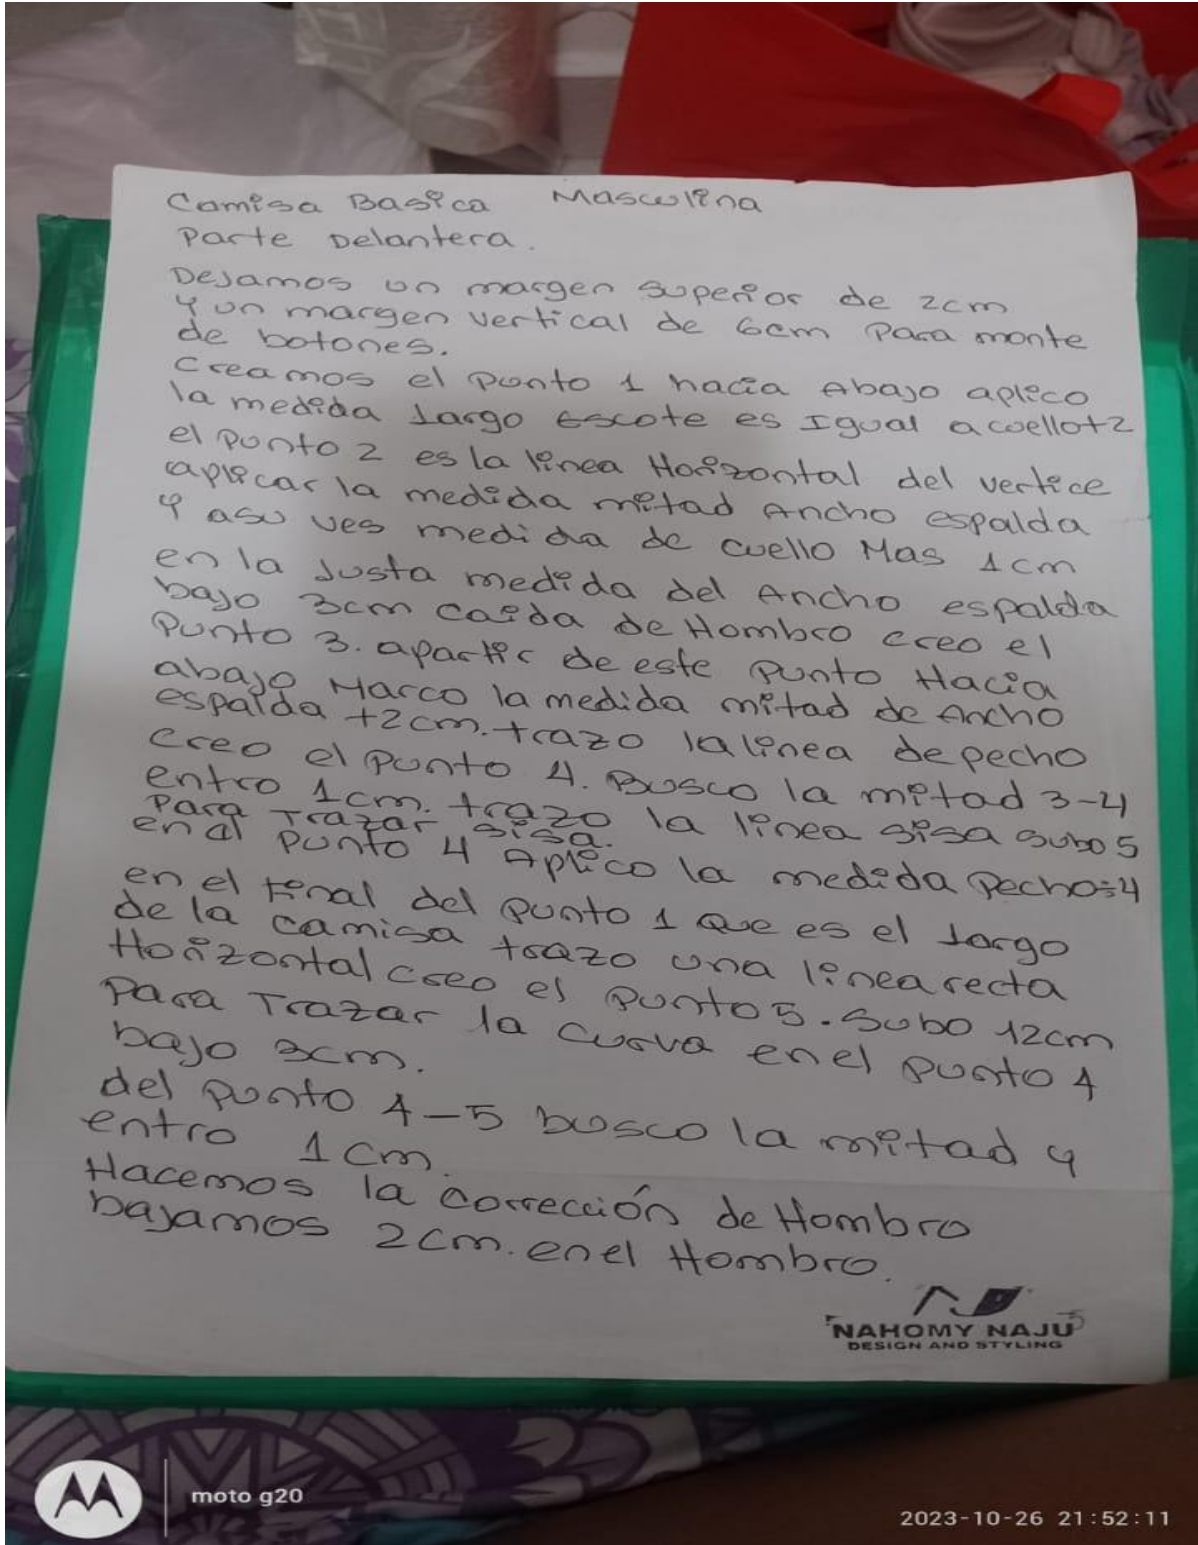 Camisa Basica Masculina
Parte Delantera.
Dejamos un margen superior de 2cm
y un margen vertical de 6cm Para monte
de botones.
Creamos el Punto 1 hacia Abajo aplico
la medida Largo Escote es Igual a cuello+2
el Punto 2 es la linea Horizontal del vertice
aplicar la medida mitad Ancho espalda
y asu ves medida de cuello Mas 1cm
en la Justa medida del Ancho espalda
bajo 3cm caida de Hombro creo el
Punto 3. apartir de este Punto Hacia
abajo Marco la medida mitad de Ancho
espalda +2cm. trazo la linea de pecho
creo el Punto 4. Busco la mitad 3-4
entro 1cm. trazo la linea sisa subo 5
Para Trazar sisa.
en el Punto 4 Aplico la medida Pecho÷4
en el final del Punto 1 que es el largo
de la camisa trazo una linea recta
Horizontal creo el Punto 5. Subo 12cm
Para Trazar la Curva en el Punto 4
bajo 3cm.
del Punto 4-5 busco la mitad y
entro 1cm.
Hacemos la corrección de Hombro
bajamos 2cm. en el Hombro.
NAHOMY NAJU
DESIGN AND STYLING
moto g20
2023-10-26 21:52:11